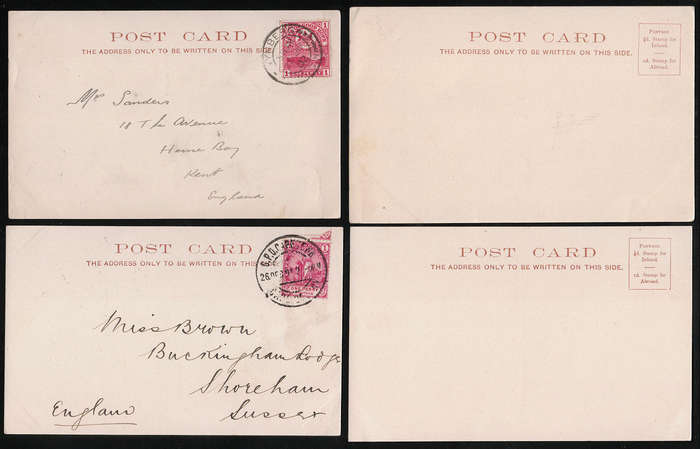 POST CARD
THE ADDRESS ONLY TO BE WRITTEN ON THIS SIDE.
1 1
Mrs Sanders
18 The Avenue
Herne Bay
Kent
England
POST CARD
THE ADDRESS ONLY TO BE WRITTEN ON THIS SIDE.
POSTAGE
½d. Stamp for
Inland.
1d. Stamp for
Abroad.
POST CARD
THE ADDRESS ONLY TO BE WRITTEN ON THIS SIDE.
G.P.O. CAPE
Miss Brown
Buckingham Lodge
Shoreham
Sussex
England
POST CARD
THE ADDRESS ONLY TO BE WRITTEN ON THIS SIDE.
POSTAGE
½d. Stamp for
Inland
1d. Stamp for
Abroad.